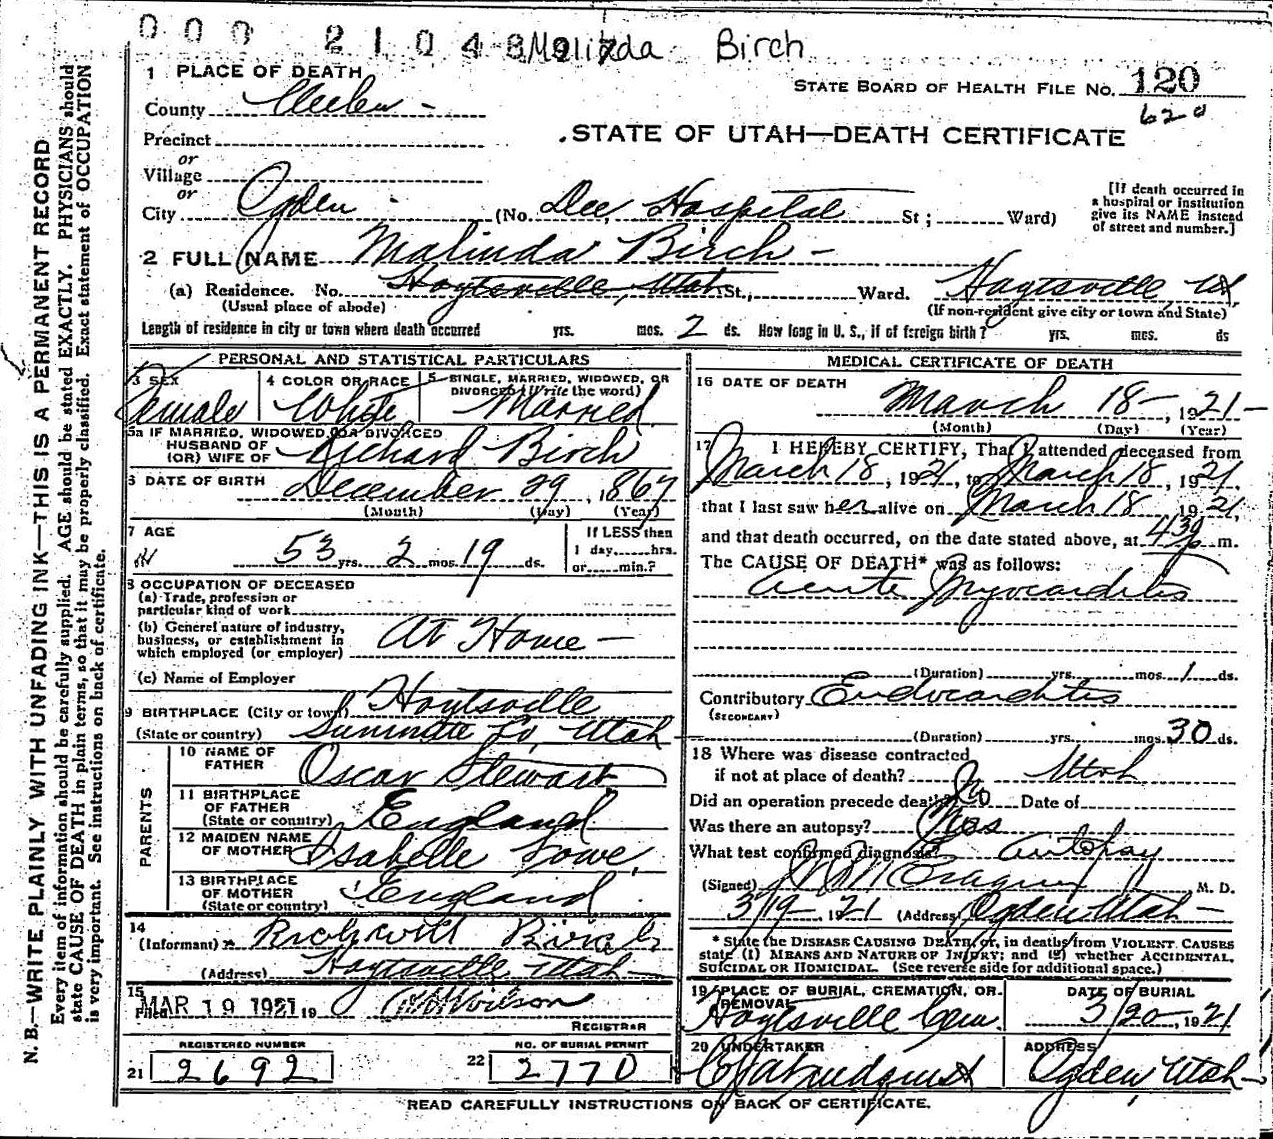 000 2104 Malinda Birch
1 PLACE OF DEATH
STATE BOARD OF HEALTH FILE NO. 120
620
County Weber -
STATE OF UTAH—DEATH CERTIFICATE
Precinct
or
Village
or
City Ogden (No. Dee Hospital St; Ward)
[If death occurred in a hospital or institution give its NAME instead of street and number.]
2 FULL NAME Malinda Birch -
(a) Residence. No. Hoytsville, Utah St., Ward. Hoytsville, Ut.
(Usual place of abode) (If non-resident give city or town and State)
Length of residence in city or town where death occurred yrs. mos. 2 ds. How long in U. S., if of foreign birth? yrs. mos. ds
PERSONAL AND STATISTICAL PARTICULARS
3 SEX Female
4 COLOR OR RACE White
5 SINGLE, MARRIED, WIDOWED, OR DIVORCED (Write the word) Married
5a IF MARRIED, WIDOWED, OR DIVORCED
HUSBAND OF
(OR) WIFE OF Richard Birch
6 DATE OF BIRTH December 29, 1867
(Month) (Day) (Year)
7 AGE 53 yrs. 2 mos. 19 ds.
If LESS then
1 day,......hrs.
or......min.?
8 OCCUPATION OF DECEASED
(a) Trade, profession or
particular kind of work
(b) General nature of industry,
business, or establishment in
which employed (or employer) At Home -
(c) Name of Employer
9 BIRTHPLACE (City or town) Hoytsville
(State or country) Summit Co, Utah
PARENTS
10 NAME OF
FATHER Oscar Stewart
11 BIRTHPLACE
OF FATHER
(State or country) England
12 MAIDEN NAME
OF MOTHER Isabelle Lowe,
13 BIRTHPLACE
OF MOTHER
(State or country) England
14
(Informant) Birch
(Address) Hoytsville Utah
15
Filed MAR 19 1921 19 Wilson
REGISTRAR
REGISTERED NUMBER
21 2692
NO. OF BURIAL PERMIT
22 2770
MEDICAL CERTIFICATE OF DEATH
16 DATE OF DEATH
March 18 -, 1921 -
(Month) (Day) (Year)
17 I HEREBY CERTIFY, That I attended deceased from
March 18, 1921, to March 18, 1921.
that I last saw her alive on March 18 1921,
and that death occurred, on the date stated above, at 430 P m.
The CAUSE OF DEATH* was as follows:
Acute Myocarditis
(Duration) yrs. mos. 1 ds.
Contributory Endocarditis
(SECONDARY)
(Duration) yrs. mos. 30 ds.
18 Where was disease contracted
if not at place of death? Utah
Did an operation precede death? No Date of
Was there an autopsy? Yes
What test confirmed diagnosis? Autopsy
(Signed) M. D.
3/19 - 1921 (Address) Ogden Utah -
* State the DISEASE CAUSING DEATH, or, in deaths from VIOLENT CAUSES
state (1) MEANS AND NATURE OF INJURY; and (2) whether ACCIDENTAL,
SUICIDAL OR HOMICIDAL. (See reverse side for additional space.)
19 PLACE OF BURIAL, CREMATION, OR
REMOVAL
Hoytsville Cem.
DATE OF BURIAL
3/20 -, 1921
20 UNDERTAKER
ADDRESS
Ogden, Utah -
READ CAREFULLY INSTRUCTIONS ON BACK OF CERTIFICATE.
N. B.—WRITE PLAINLY WITH UNFADING INK—THIS IS A PERMANENT RECORD
Every item of information should be carefully supplied. AGE should be stated EXACTLY. PHYSICIANS should
state CAUSE OF DEATH in plain terms, so that it may be properly classified. Exact statement of OCCUPATION
is very important. See instructions on back of certificate.